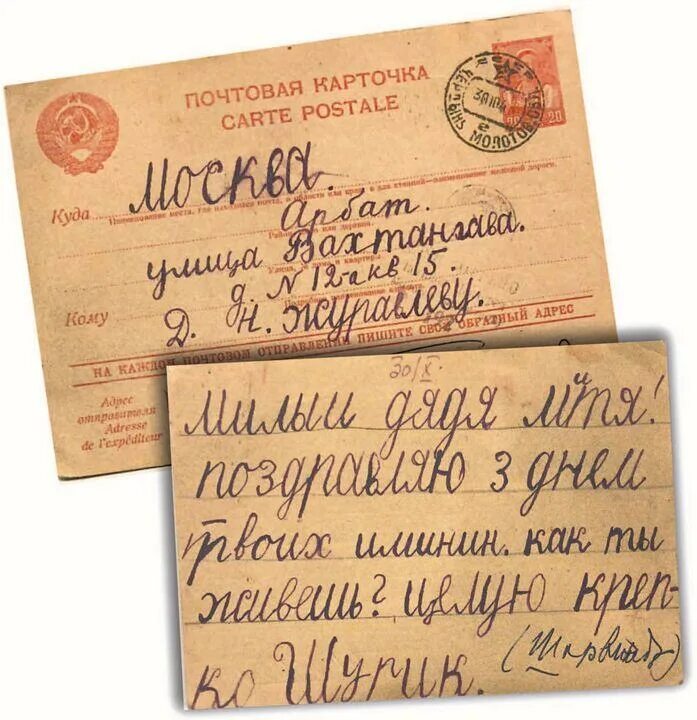 ПОЧТОВАЯ КАРТОЧКА
CARTE POSTALE
ЧЕРДЫНЬ МОЛОТОВ
20
Куда Москва.
Арбат.
улица Вахтангава.
д. N 12-а кв 15.
Кому Д. Н. Журавлеву.
НА КАЖДОМ ПОЧТОВОМ ОТПРАВЛЕНИИ ПИШИТЕ СВОЙ ОБРАТНЫЙ АДРЕС
Адрес
отправителя
Adresse
de l'expéditeur
30/X.
милыи дядя митя!
поздравляю з днем
твоих иминин. как ты
живешь? целую креп-
ко Шурик.
(Ширвиндт)